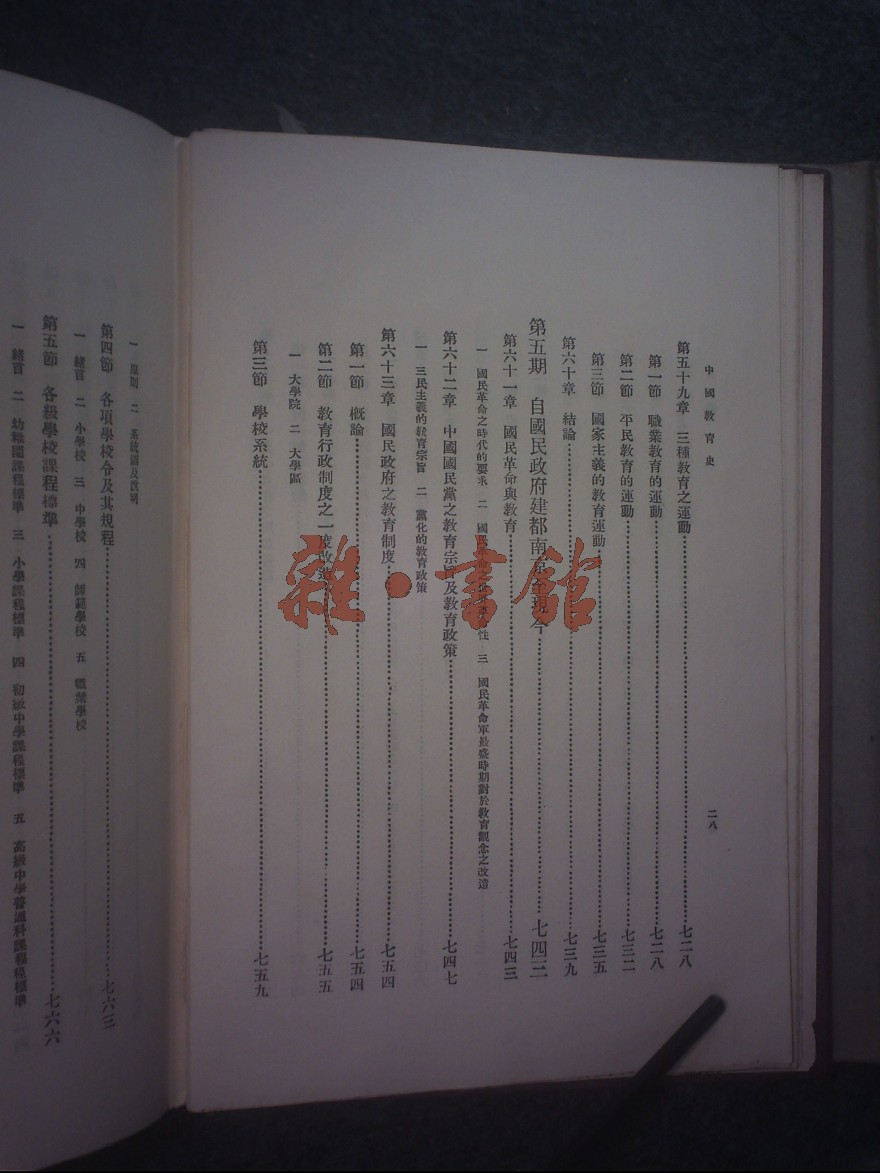 中國教育史
二八
第五十九章 三種教育之運動……七二八
第一節 職業教育的運動……七二八
第二節 平民教育的運動……七三二
第三節 國家主義的教育運動……七三五
第六十章 結論……七三九
第五期 自國民政府建都南京至現今……七四二
第六十一章 國民革命與教育……七四三
一 國民革命之時代的要求 二 國民革命之 性 三 國民革命軍最盛時期對於教育觀念之改造
第六十二章 中國國民黨之教育宗旨及教育政策……七四七
一 三民主義的教育宗旨 二 黨化的教育政策
第六十三章 國民政府之教育制度……七五四
第一節 概論……七五四
第二節 教育行政制度之一度改造……七五五
一 大學院 二 大學區
第三節 學校系統……七五九
一 原則 二 系統圖及說明
第四節 各項學校令及其規程……七六三
一 緒言 二 小學校 三 中學校 四 師範學校 五 職業學校
第五節 各級學校課程標準……七六六
一 緒言 二 幼稚園課程標準 三 小學課程標準 四 初級中學課程標準 五 高級中學普通科課程標準
雜·書館